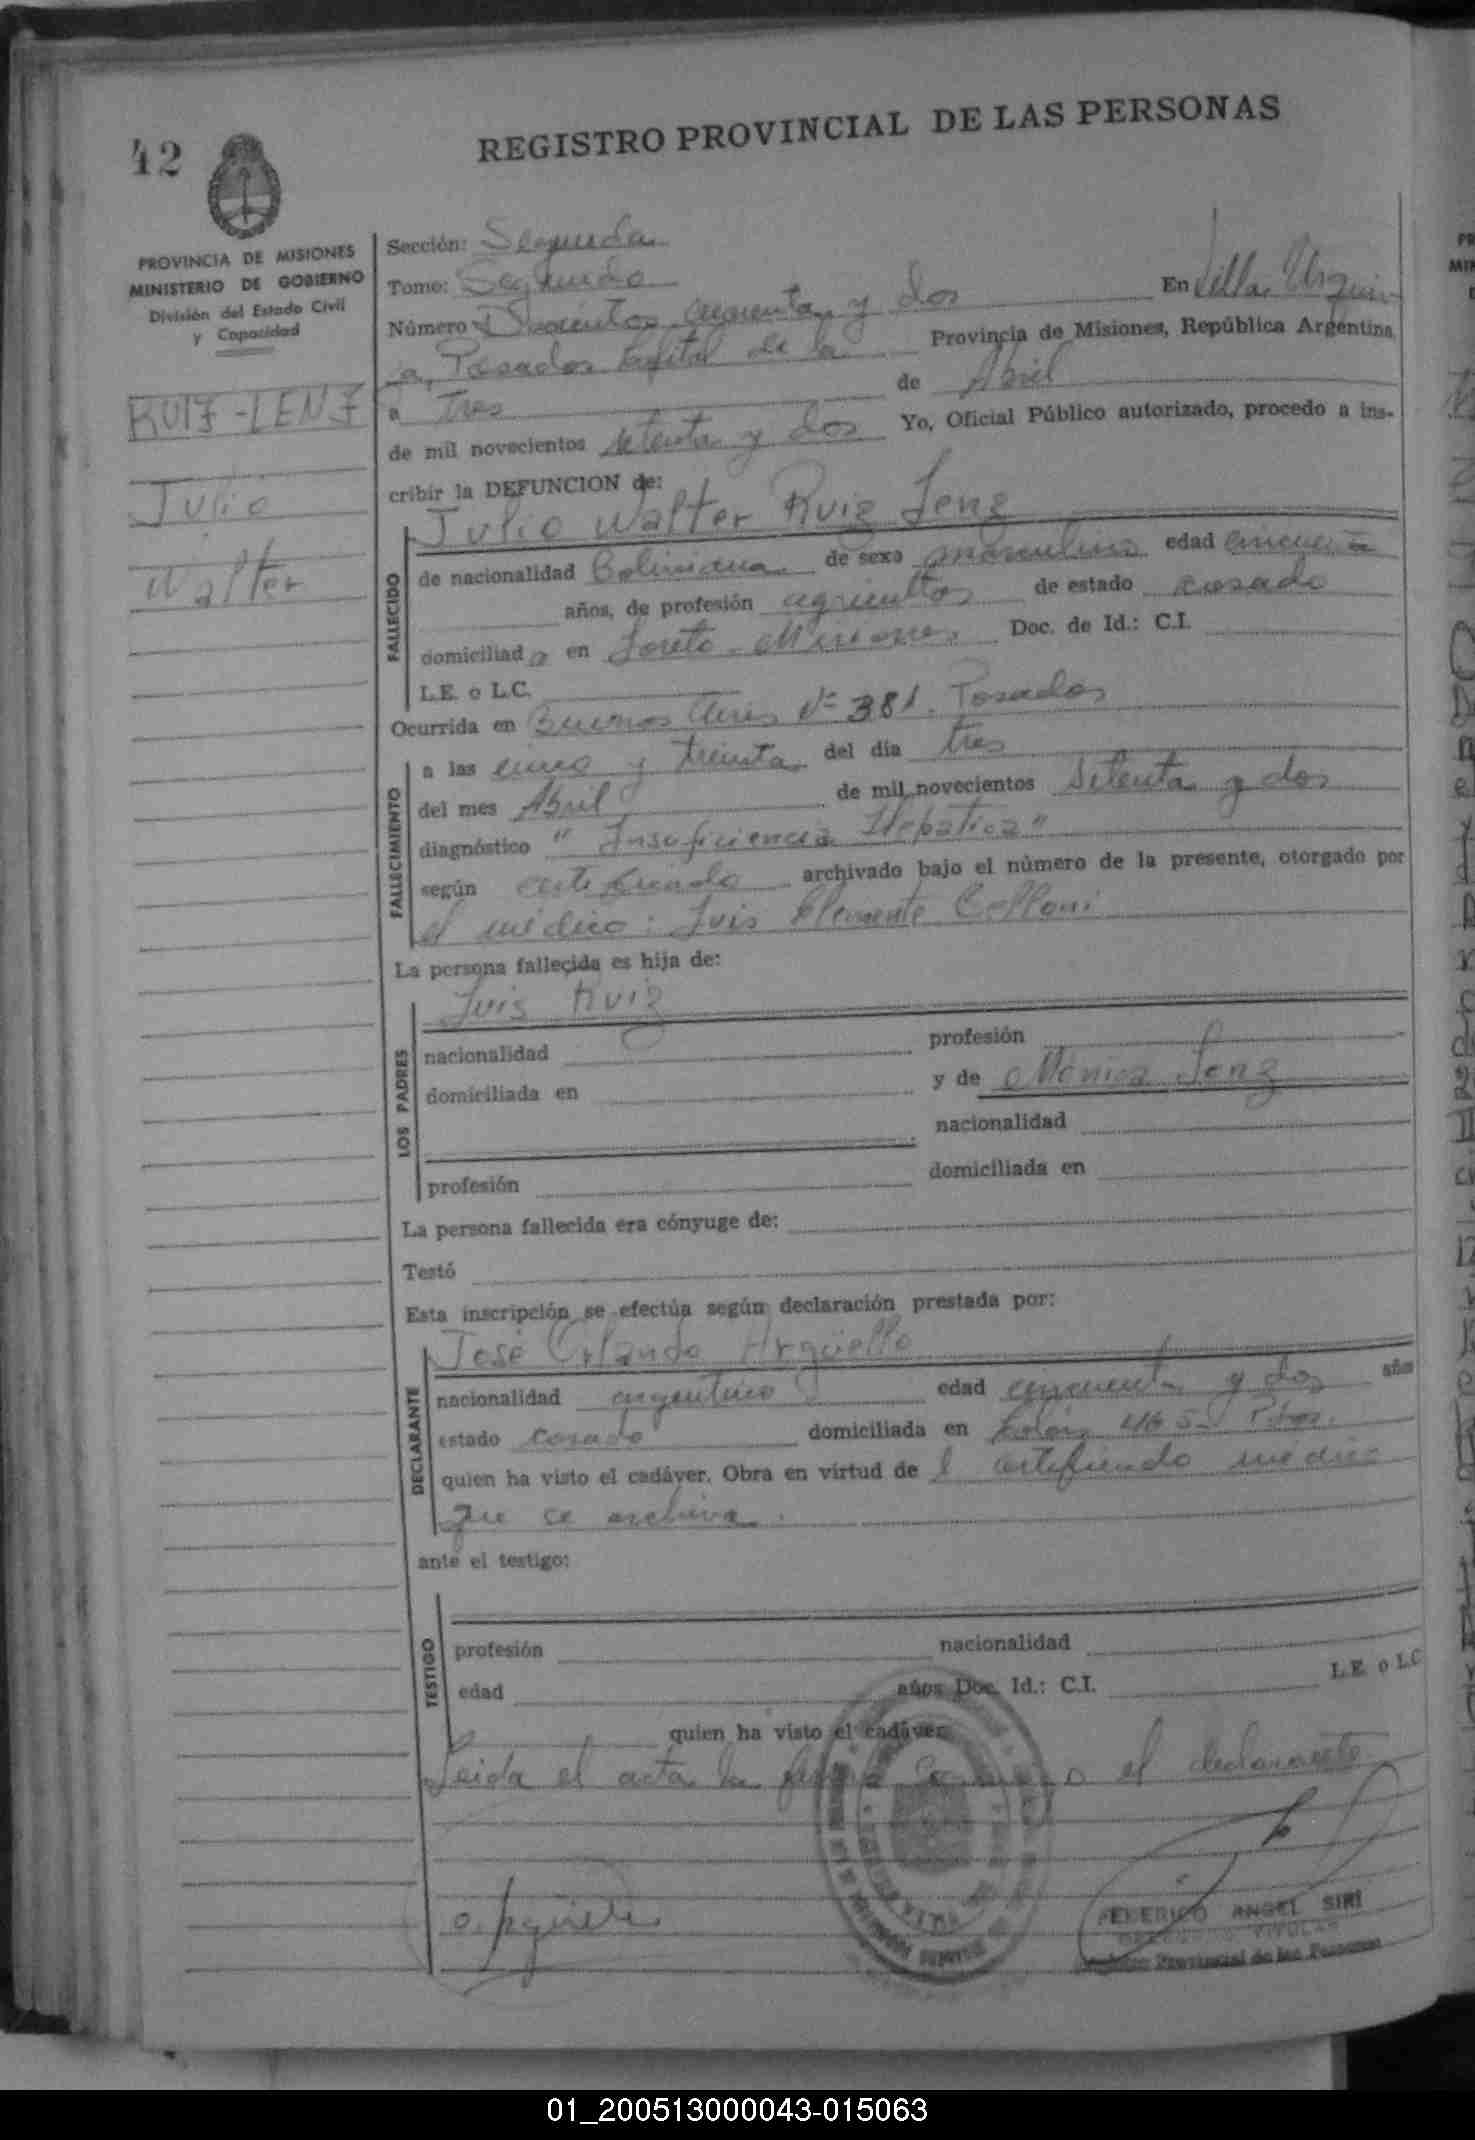 42
REGISTRO PROVINCIAL DE LAS PERSONAS
PROVINCIA DE MISIONES
MINISTERIO DE GOBIERNO
División del Estado Civil
y Capacidad
RUIZ-LENZ
Julio
Walter
Sección: Segunda
Tomo: Segundo
Número Doscientos cuarenta y dos En Villa Urqui
za, Posadas Capital de la Provincia de Misiones, República Argentina,
a Tres de Abril
de mil novecientos setenta y dos Yo, Oficial Público autorizado, procedo a ins-
cribir la DEFUNCION de:
Julio Walter Ruiz Lenz
FALLECIDO
de nacionalidad Boliviana de sexo masculino edad
años, de profesión agricultor de estado casado
domiciliado en Loreto - Misiones. Doc. de Id.: C.I.
L.E. o L.C.
Ocurrida en Buenos Aires Nº 381. Posadas
FALLECIMIENTO
a las cinco y treinta del día tres
del mes Abril de mil novecientos setenta y dos
diagnóstico "Insuficiencia Hepatica"
según certificado archivado bajo el número de la presente, otorgado por
el médico: Luis Clemente
La persona fallecida es hija de:
LOS PADRES
Luis Ruiz
nacionalidad profesión
domiciliada en y de Mónica Lenz
nacionalidad
profesión domiciliada en
La persona fallecida era cónyuge de:
Testó
Esta inscripción se efectúa según declaración prestada por:
DECLARANTE
José Orlando Argüello
nacionalidad argentino edad cincuenta y dos años
estado casado domiciliada en Colón 465 - Pdas.
quien ha visto el cadáver. Obra en virtud de l certificado médico
que se archiva.
ante el testigo:
TESTIGO
profesión nacionalidad
edad años Doc. Id.: C.I. L.E. o L.C
quien ha visto el cadáver
Leida el acta la firma el declarante
FEDERICO ANGEL SIRI
TITULAR
Registro Provincial de las Personas
01_200513000043-015063